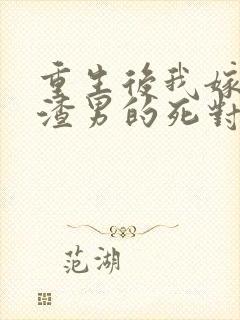 重生後我嫁
渣男的死對
范湖